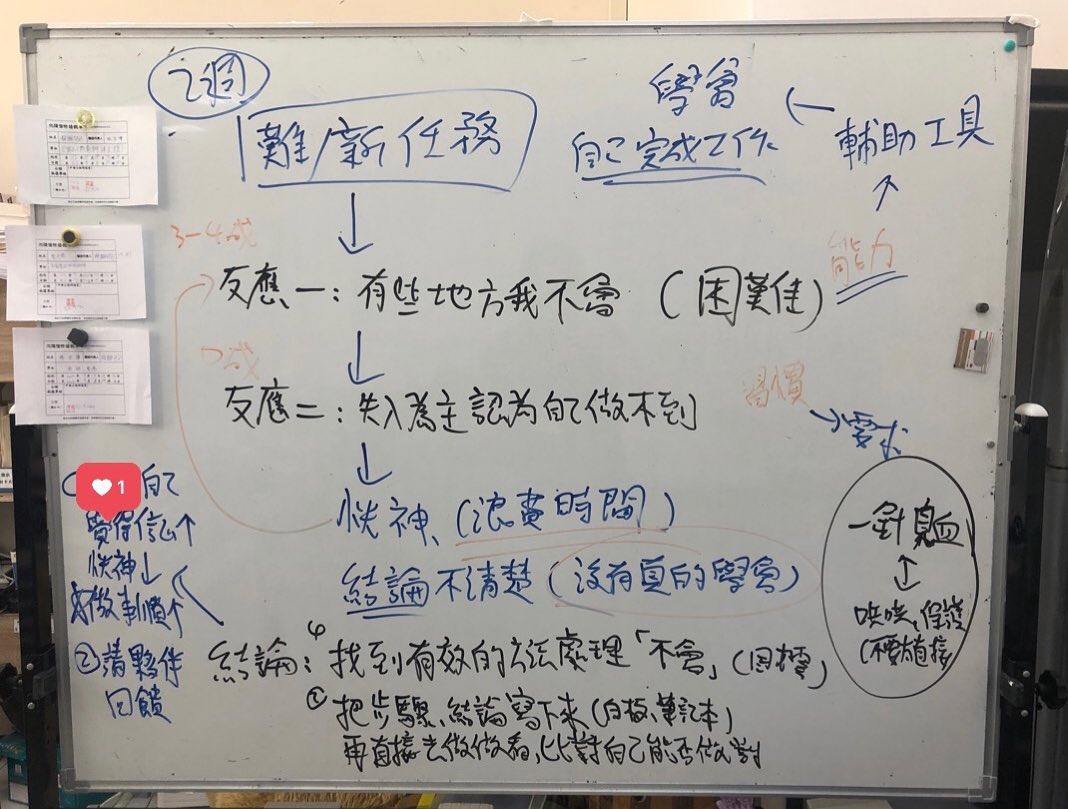 2週
難/新任務
學會
自己完成工作
← 輔助工具
↑
能力
↓
3-4成
反應一：有些地方我不會（困難佳）
↓
7成
反應二：失入為主認為自己做不到
習慣
→ 需求
↓
恍神、（浪費時間）
結論不清楚（沒有真的學會）
一針見血
↕
哄哄、保護
（不要太直接
自己
覺得信心↑
恍神↓
做事順↑
②請夥伴
回饋
結論：① 找到有效的方法處理「不會」（困難）
② 把步驟、結論寫下來（白板、筆記本）
再直接去做做看，比對自己能否做對
1